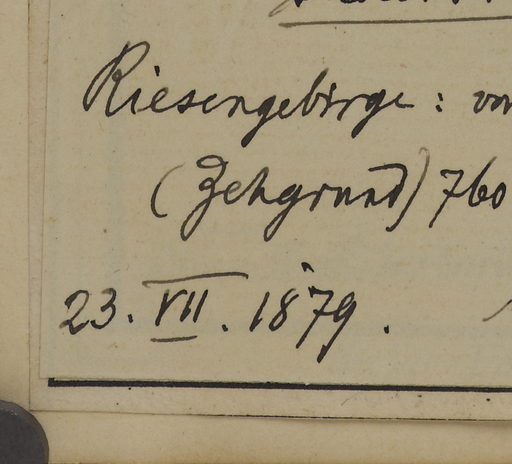 Riesengebirge : von
(Zehgrund) 760
23. VII. 1879.